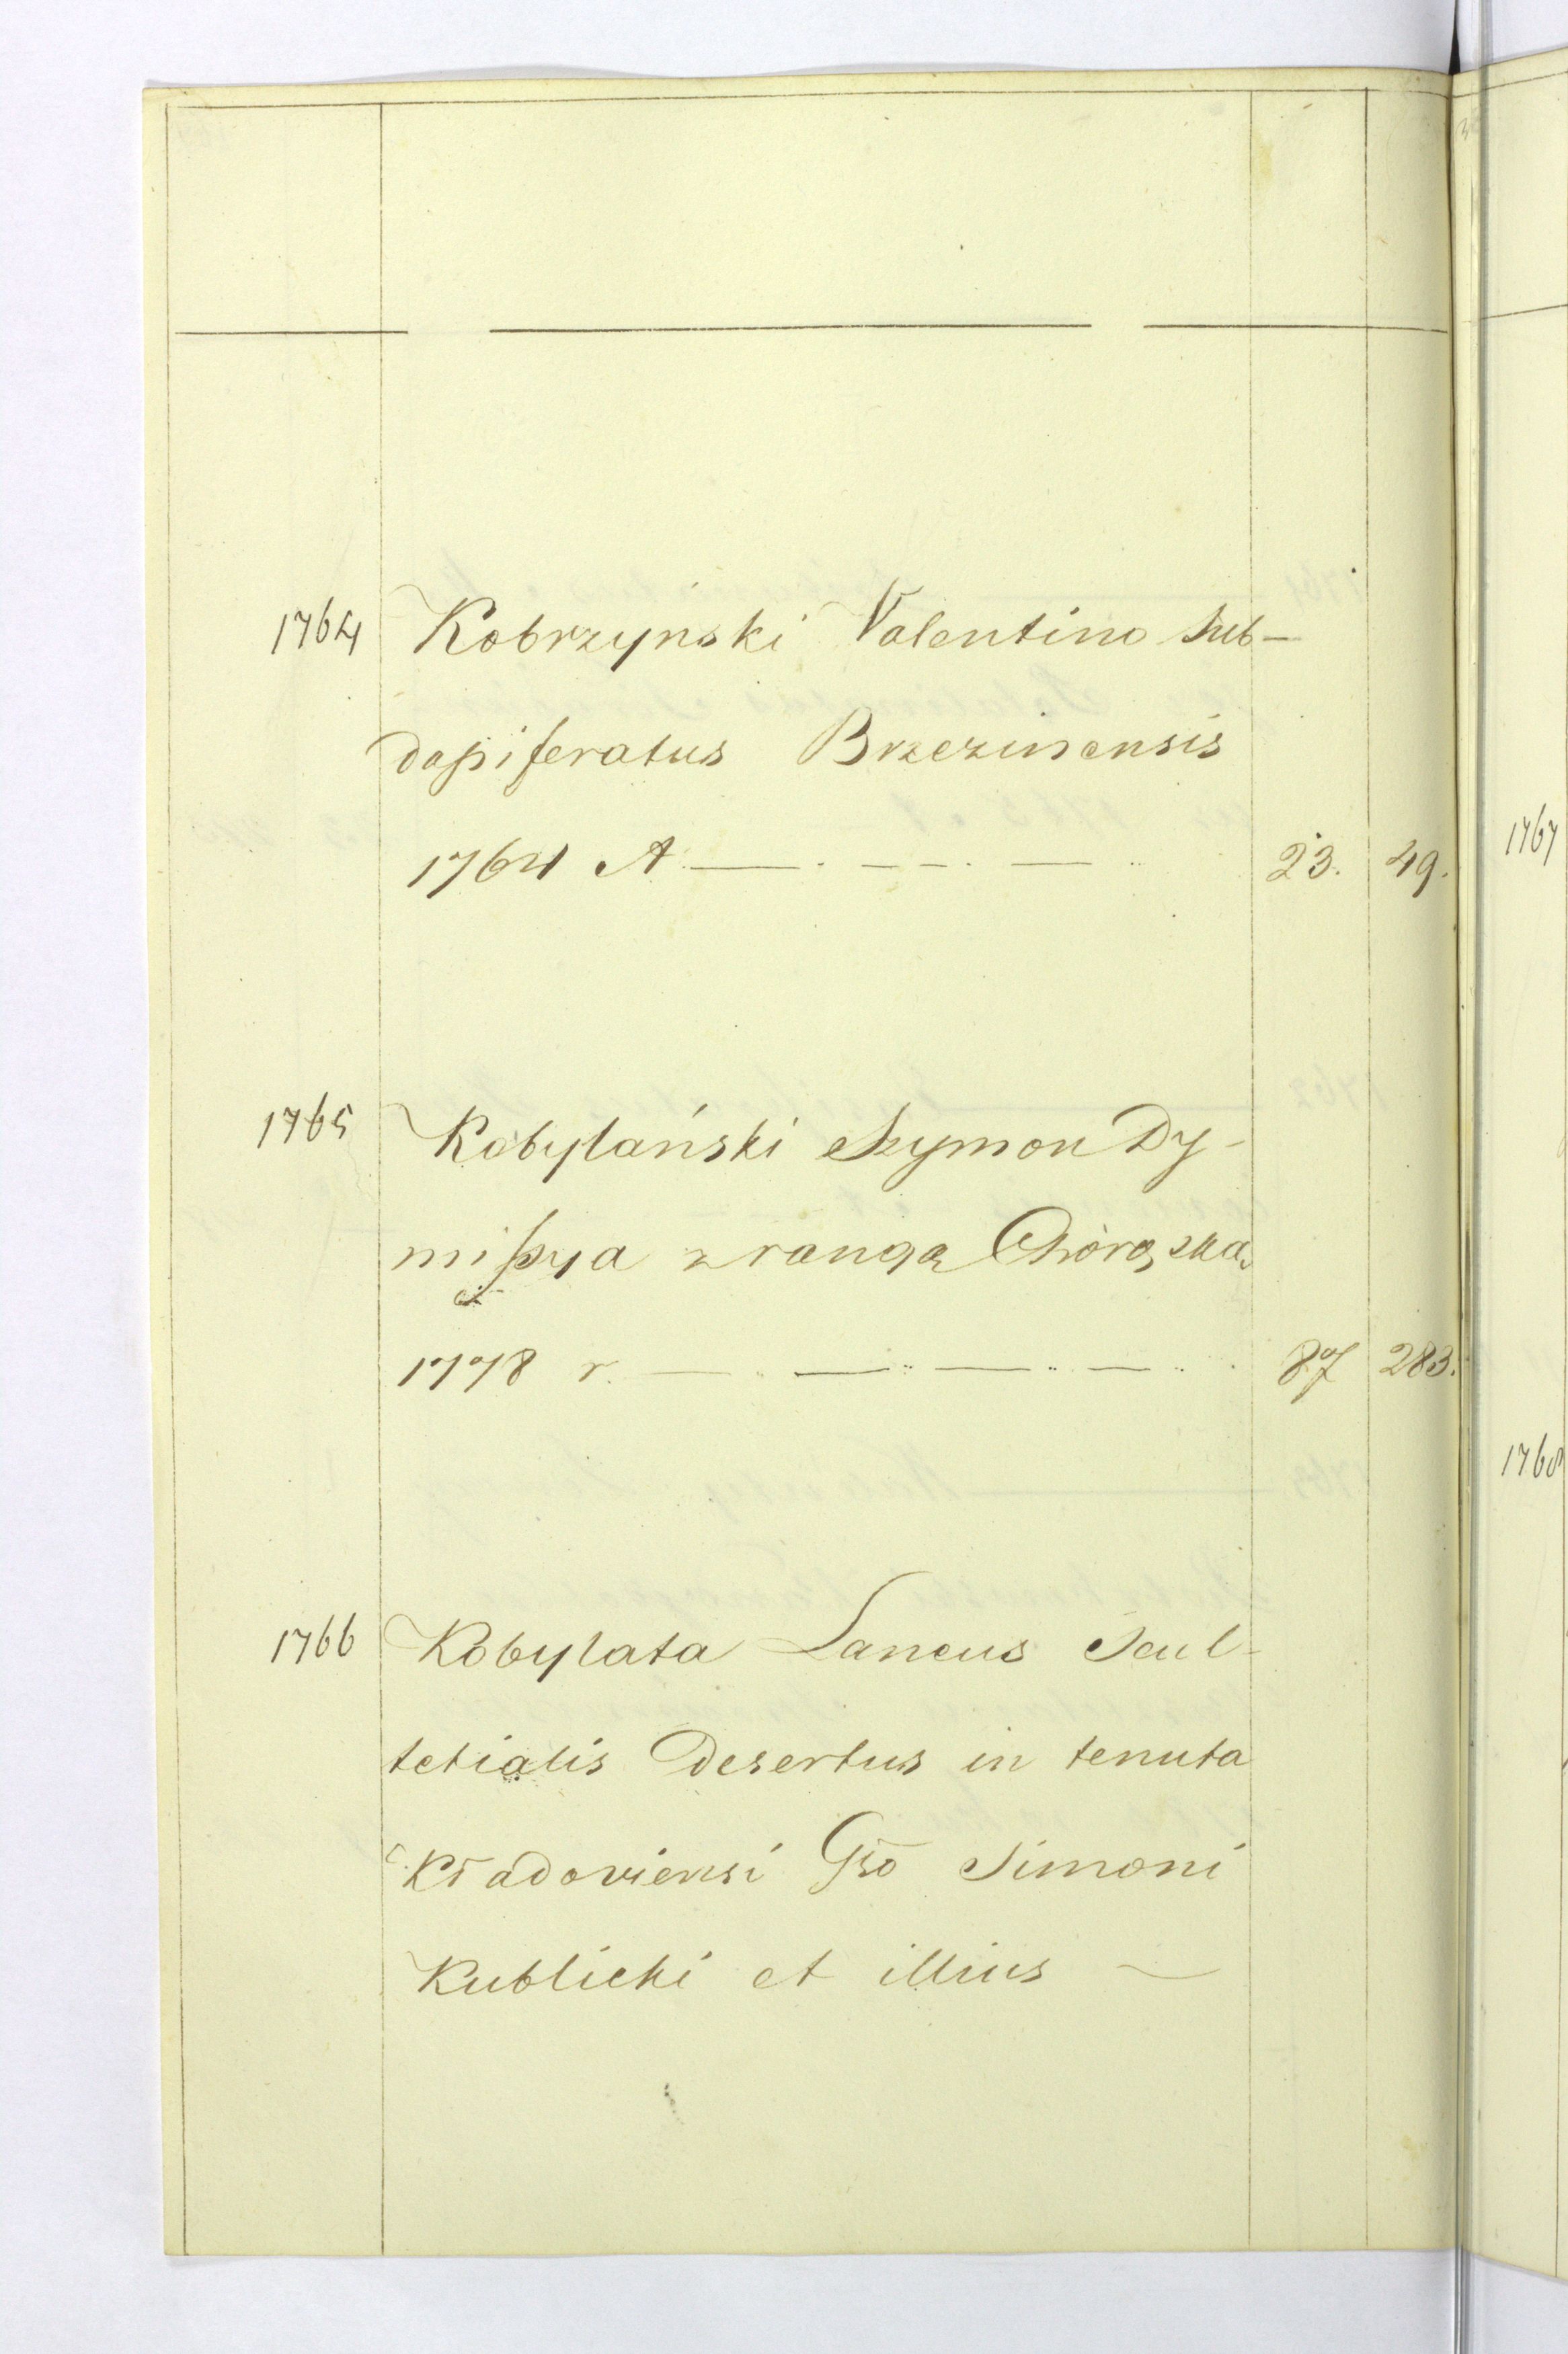 1764 Kobrzyński Valentino Sub-
dapiferatus Brzezinensis
1764 A — . — — . — .. 23. 49.
1765 Kobylański Szymon Dy-
mißya z rangą Chorążka
1778 r. — .. — .. — .. — .. 87 283.
1766 Kobylata Laneus Scul-
tetialis Desertus in tenuta
Kładoviensi Gso Simoni
Kublicki et illius —
1767
1768